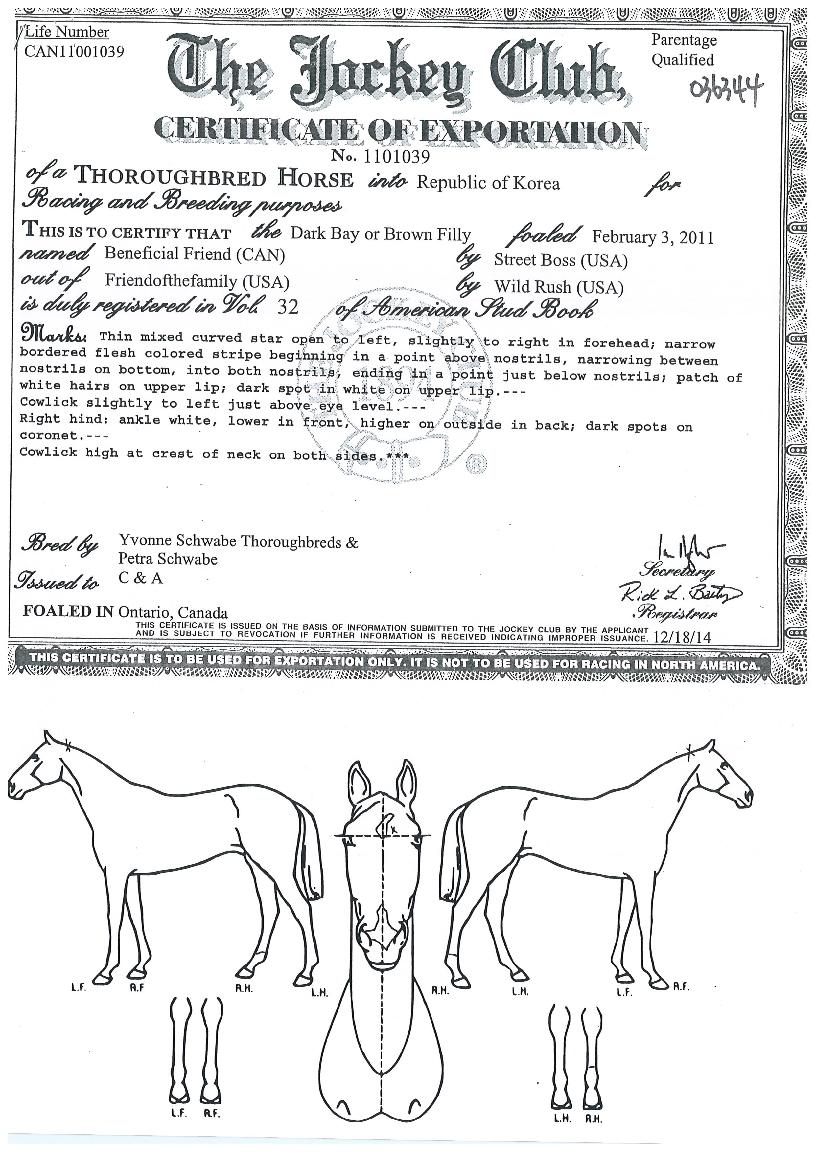 Life Number
CAN11001039
Parentage
Qualified
036344
The Jockey Club,
CERTIFICATE OF EXPORTATION
No. 1101039
of a THOROUGHBRED HORSE into Republic of Korea for
Racing and Breeding purposes
THIS IS TO CERTIFY THAT the Dark Bay or Brown Filly foaled February 3, 2011
named Beneficial Friend (CAN) by Street Boss (USA)
out of Friendofthefamily (USA) by Wild Rush (USA)
is duly registered in Vol. 32 of American Stud Book
Marks: Thin mixed curved star open to left, slightly to right in forehead; narrow
bordered flesh colored stripe beginning in a point above nostrils, narrowing between
nostrils on bottom, into both nostrils; ending in a point just below nostrils; patch of
white hairs on upper lip; dark spot in white on upper lip.---
Cowlick slightly to left just above eye level.---
Right hind: ankle white, lower in front, higher on outside in back; dark spots on
coronet.---
Cowlick high at crest of neck on both sides.***
®
Bred by Yvonne Schwabe Thoroughbreds &
Petra Schwabe
Issued to C & A
Secretary
Registrar
FOALED IN Ontario, Canada
THIS CERTIFICATE IS ISSUED ON THE BASIS OF INFORMATION SUBMITTED TO THE JOCKEY CLUB BY THE APPLICANT
AND IS SUBJECT TO REVOCATION IF FURTHER INFORMATION IS RECEIVED INDICATING IMPROPER ISSUANCE. 12/18/14
THIS CERTIFICATE IS TO BE USED FOR EXPORTATION ONLY. IT IS NOT TO BE USED FOR RACING IN NORTH AMERICA.
L.F. R.F R.H. L.H. R.H. L.H. L.F. R.F.
L.F. R.F. L.H. R.H.